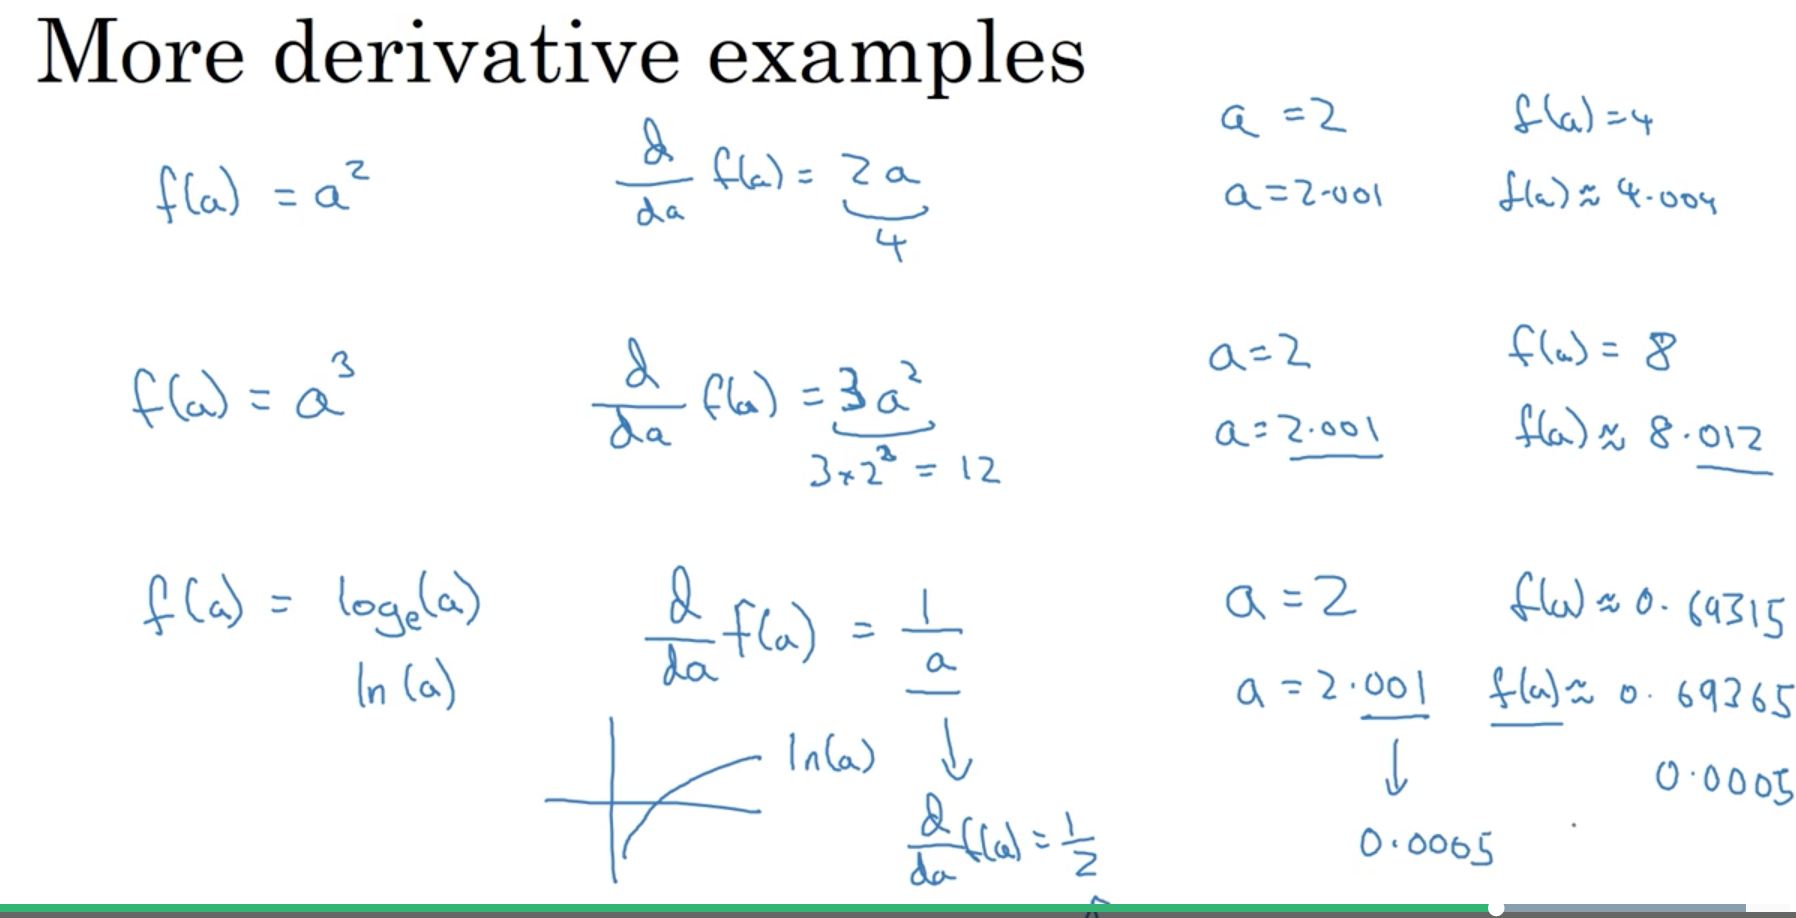 More derivative examples
f(a) = a²
d/da f(a) = 2a
4
a = 2 f(a) = 4
a = 2.001 f(a) ≈ 4.004
f(a) = a³
d/da f(a) = 3a²
3×2² = 12
a = 2 f(a) = 8
a = 2.001 f(a) ≈ 8.012
f(a) = logₑ(a)
ln(a)
d/da f(a) = 1/a
a = 2 f(a) ≈ 0.69315
a = 2.001 f(a) ≈ 0.69365
ln(a)
↓
d/da f(a) = 1/2
↓
0.0005
0.0005